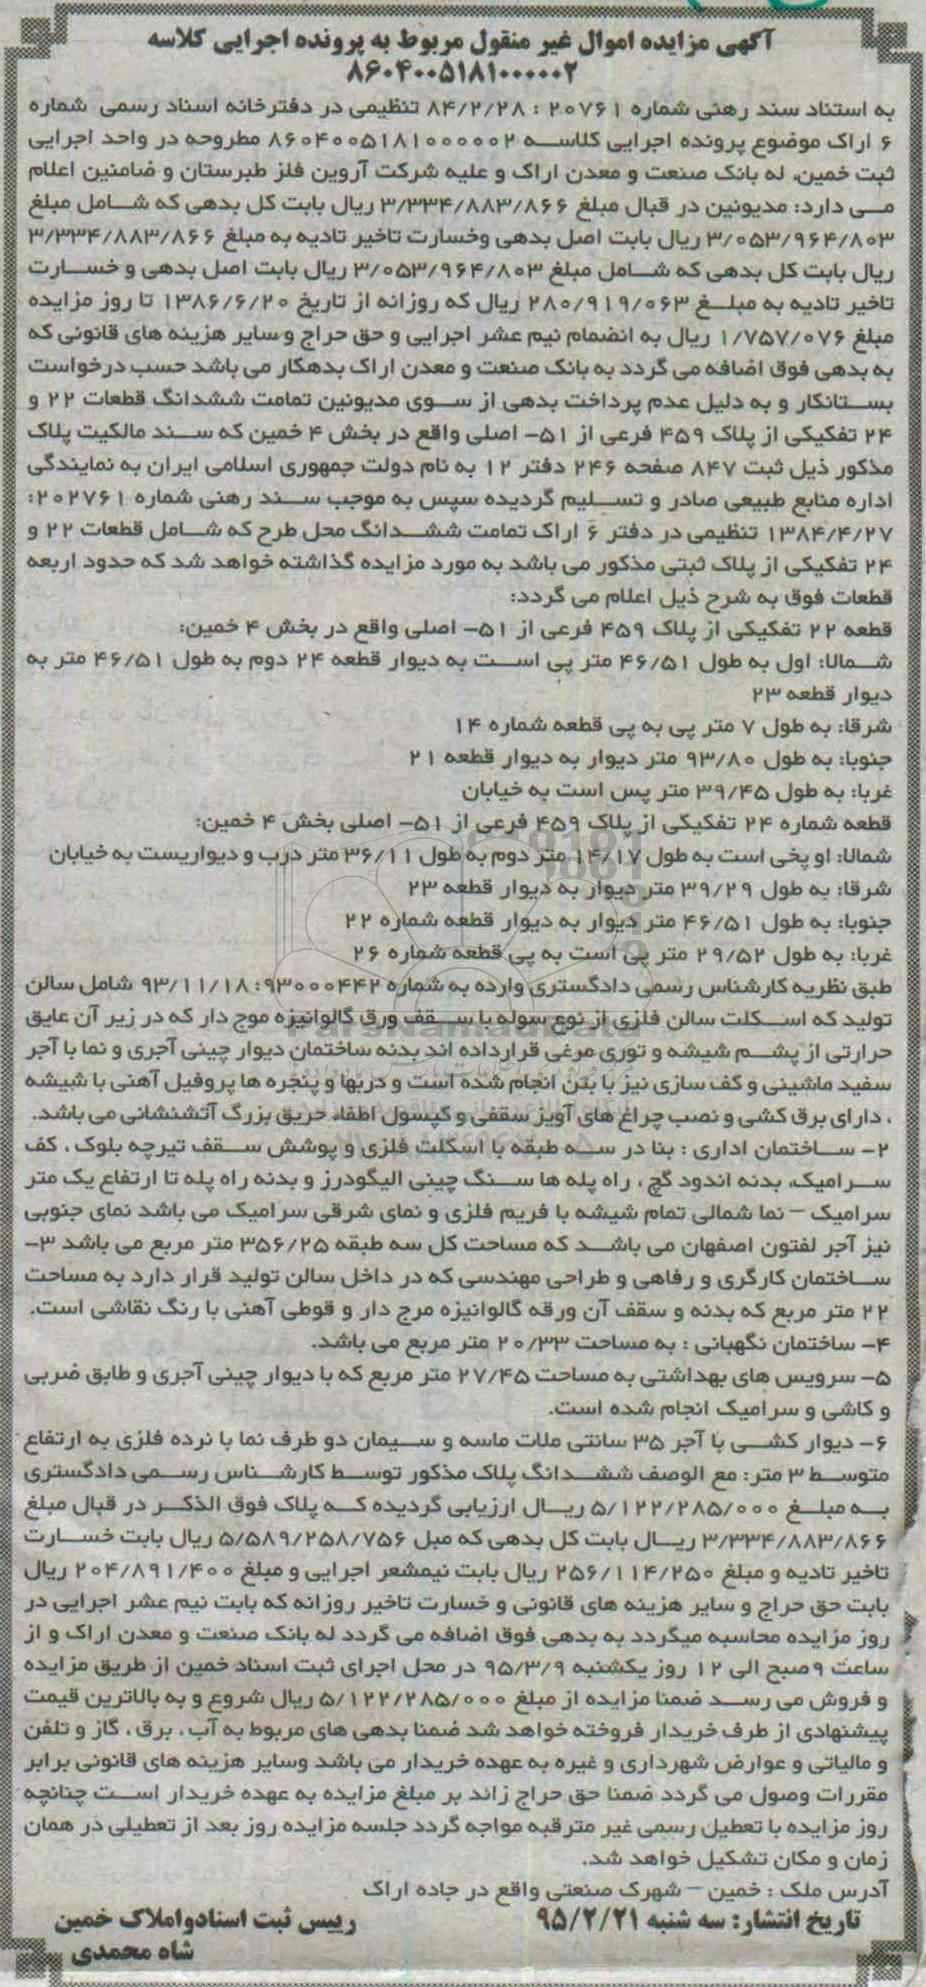 آگهی مزایده اموال غیر منقول مربوط به پرونده اجرایی کلاسه
۸۶۰۴۰۰۵۱۸۱۰۰۰۰۰۲
به استناد سند رهنی شماره ۲۰۷۶۱ : ۸۴/۲/۲۸ تنظیمی در دفترخانه اسناد رسمی شماره
۶ اراک موضوع پرونده اجرایی کلاسه ۸۶۰۴۰۰۵۱۸۱۰۰۰۰۰۲ مطروحه در واحد اجرایی
ثبت خمین، له بانک صنعت و معدن اراک و علیه شرکت آروین فلز طبرستان و ضامنین اعلام
می دارد: مدیونین در قبال مبلغ ۳/۳۳۴/۸۸۳/۸۶۶ ریال بابت کل بدهی که شامل مبلغ
۳/۰۵۳/۹۶۴/۸۰۳ ریال بابت اصل بدهی وخسارت تاخیر تادیه به مبلغ ۳/۳۳۴/۸۸۳/۸۶۶
ریال بابت کل بدهی که شامل مبلغ ۳/۰۵۳/۹۶۴/۸۰۳ ریال بابت اصل بدهی و خسارت
تاخیر تادیه به مبلغ ۲۸۰/۹۱۹/۰۶۳ ریال که روزانه از تاریخ ۱۳۸۶/۶/۲۰ تا روز مزایده
مبلغ ۱/۷۵۷/۰۷۶ ریال به انضمام نیم عشر اجرایی و حق حراج و سایر هزینه های قانونی که
به بدهی فوق اضافه می گردد به بانک صنعت و معدن اراک بدهکار می باشد حسب درخواست
بستانکار و به دلیل عدم پرداخت بدهی از سوی مدیونین تمامت ششدانگ قطعات ۲۲ و
۲۴ تفکیکی از پلاک ۴۵۹ فرعی از ۵۱- اصلی واقع در بخش ۴ خمین که سند مالکیت پلاک
مذکور ذیل ثبت ۸۴۷ صفحه ۲۴۶ دفتر ۱۲ به نام دولت جمهوری اسلامی ایران به نمایندگی
اداره منابع طبیعی صادر و تسلیم گردیده سپس به موجب سند رهنی شماره ۲۰۲۷۶۱:
۱۳۸۴/۴/۲۷ تنظیمی در دفتر ۶ اراک تمامت ششدانگ محل طرح که شامل قطعات ۲۲ و
۲۴ تفکیکی از پلاک ثبتی مذکور می باشد به مورد مزایده گذاشته خواهد شد که حدود اربعه
قطعات فوق به شرح ذیل اعلام می گردد:
قطعه ۲۲ تفکیکی از پلاک ۴۵۹ فرعی از ۵۱- اصلی واقع در بخش ۴ خمین:
شمالا: اول به طول ۴۶/۵۱ متر پی است به دیوار قطعه ۲۴ دوم به طول ۴۶/۵۱ متر به
دیوار قطعه ۲۳
شرقا: به طول ۷ متر پی به پی قطعه شماره ۱۴
جنوبا: به طول ۹۳/۸۰ متر دیوار به دیوار قطعه ۲۱
غربا: به طول ۳۹/۴۵ متر پس است به خیابان
قطعه شماره ۲۴ تفکیکی از پلاک ۴۵۹ فرعی از ۵۱- اصلی بخش ۴ خمین:
شمالا: او پخی است به طول ۱۴/۱۷ متر دوم به طول ۳۶/۱۱ متر درب و دیواریست به خیابان
شرقا: به طول ۳۹/۲۹ متر دیوار به دیوار قطعه ۲۳
جنوبا: به طول ۴۶/۵۱ متر دیوار به دیوار قطعه شماره ۲۲
غربا: به طول ۲۹/۵۲ متر پی است به پی قطعه شماره ۲۶
طبق نظریه کارشناس رسمی دادگستری وارده به شماره ۹۳۰۰۰۴۴۲: ۹۳/۱۱/۱۸ شامل سالن
تولید که اسکلت سالن فلزی از نوع سوله با سقف ورق گالوانیزه موج دار که در زیر آن عایق
حرارتی از پشم شیشه و توری مرغی قرارداده اند بدنه ساختمان دیوار چینی آجری و نما با آجر
سفید ماشینی و کف سازی نیز با بتن انجام شده است و دربها و پنجره ها پروفیل آهنی با شیشه
، دارای برق کشی و نصب چراغ های آویز سقفی و کپسول اطفاء حریق بزرگ آتشنشانی می باشد.
۲- ساختمان اداری : بنا در سه طبقه با اسکلت فلزی و پوشش سقف تیرچه بلوک ، کف
سرامیک، بدنه اندود گچ ، راه پله ها سنگ چینی الیگودرز و بدنه راه پله تا ارتفاع یک متر
سرامیک – نما شمالی تمام شیشه با فریم فلزی و نمای شرقی سرامیک می باشد نمای جنوبی
نیز آجر لفتون اصفهان می باشد که مساحت کل سه طبقه ۳۵۶/۲۵ متر مربع می باشد ۳-
ساختمان کارگری و رفاهی و طراحی مهندسی که در داخل سالن تولید قرار دارد به مساحت
۲۲ متر مربع که بدنه و سقف آن ورقه گالوانیزه مرج دار و قوطی آهنی با رنگ نقاشی است.
۴- ساختمان نگهبانی : به مساحت ۲۰/۳۳ متر مربع می باشد.
۵- سرویس های بهداشتی به مساحت ۲۷/۴۵ متر مربع که با دیوار چینی آجری و طابق ضربی
و کاشی و سرامیک انجام شده است.
۶- دیوار کشی با آجر ۳۵ سانتی ملات ماسه و سیمان دو طرف نما با نرده فلزی به ارتفاع
متوسط ۳ متر: مع الوصف ششدانگ پلاک مذکور توسط کارشناس رسمی دادگستری
به مبلغ ۵/۱۲۲/۲۸۵/۰۰۰ ریال ارزیابی گردیده که پلاک فوق الذکر در قبال مبلغ
۳/۳۳۴/۸۸۳/۸۶۶ ریال بابت کل بدهی که مبل ۵/۵۸۹/۲۵۸/۷۵۶ ریال بابت خسارت
تاخیر تادیه و مبلغ ۲۵۶/۱۱۴/۲۵۰ ریال بابت نیمشعر اجرایی و مبلغ ۲۰۴/۸۹۱/۴۰۰ ریال
بابت حق حراج و سایر هزینه های قانونی و خسارت تاخیر روزانه که بابت نیم عشر اجرایی در
روز مزایده محاسبه میگردد به بدهی فوق اضافه می گردد له بانک صنعت و معدن اراک و از
ساعت ۹صبح الی ۱۲ روز یکشنبه ۹۵/۳/۹ در محل اجرای ثبت اسناد خمین از طریق مزایده
و فروش می رسد ضمنا مزایده از مبلغ ۵/۱۲۲/۲۸۵/۰۰۰ ریال شروع و به بالاترین قیمت
پیشنهادی از طرف خریدار فروخته خواهد شد ضمنا بدهی های مربوط به آب ، برق ، گاز و تلفن
و مالیاتی و عوارض شهرداری و غیره به عهده خریدار می باشد وسایر هزینه های قانونی برابر
مقررات وصول می گردد ضمنا حق حراج زائد بر مبلغ مزایده به عهده خریدار است چنانچه
روز مزایده با تعطیل رسمی غیر مترقبه مواجه گردد جلسه مزایده روز بعد از تعطیلی در همان
زمان و مکان تشکیل خواهد شد.
آدرس ملک : خمین – شهرک صنعتی واقع در جاده اراک
تاریخ انتشار: سه شنبه ۹۵/۲/۲۱
رییس ثبت اسنادواملاک خمین
شاه محمدی